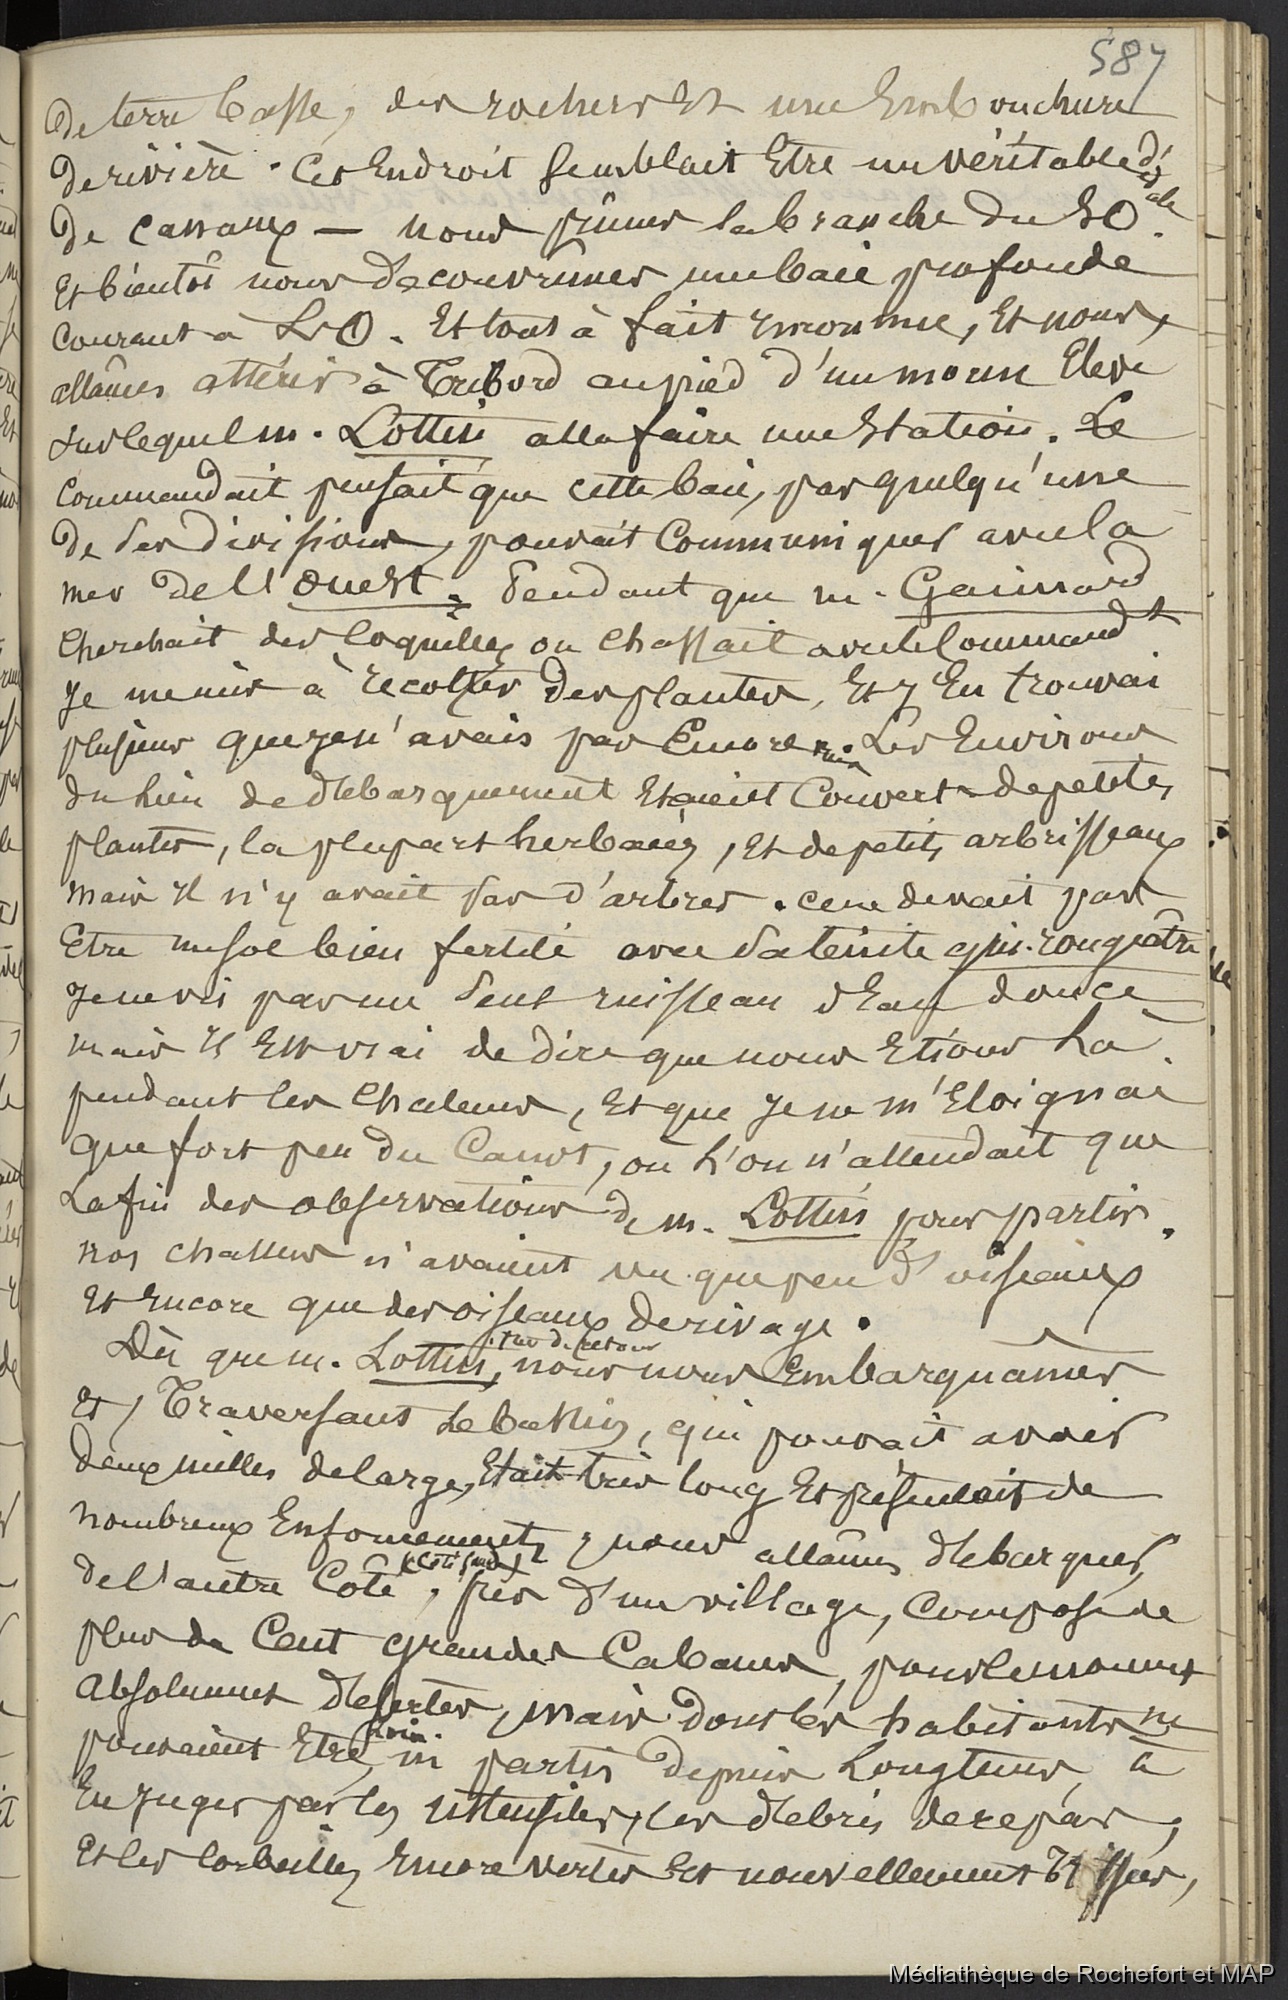 587
De terre basse, des rochers Et une Embouchure
De rivière. Cet Endroit semblait Etre un véritable dédale
De canaux — nous prîmes la branche du SO.
Et bientôt nous découvrîmes une baie profonde
Courant à L'O. Et tout à fait Enorme, Et nous
allâmes attérir à Tribord au pied d'un morne Elevé
Sur lequel m. Lottin alla faire une Station. Le
Commandant pensait que cette baie, par quelqu'une
De ses divisions, pouvait Communiquer avec la
mer De l'Ouest. Pendant que m. Gaimard
Cherchait des Coquilles ou Chassait avec le Commandt
Je me mis à récolter Des plantes, Et J'En trouvai
plusieurs que je n'avais pas Encore vues. Les Environs
du lieu de débarquement Etaient Couverts de petites
plantes, la plupart herbacées, Et de petits arbrisseaux
mais il n'y avait pas d'arbres. ce ne devait pas
Etre un sol bien fertile avec sa teinte gris-rougeâtre
Je ne vis pas un seul ruisseau d'Eau douce
mais il Est vrai de dire que nous Etions Là
pendant les Chaleurs, Et que Je ne m'Eloignai
que fort peu du Canot, où L'on n'attendait que
La fin des observations de m. Lottin pour partir.
nos chasseurs n'avaient vu que peu d'oiseaux
Et Encore que des oiseaux de rivage.
Dès que m. Lottin, fut de retour nous nous Embarquâmes
Et, Traversant le bassin, qui pouvait avoir
deux milles de large, Etait très long Et présentait de
nombreux Enfoncements, nous allâmes débarquer
de l'autre Coté (Coté sud), près d'un village, Composé de
plus de Cent grandes Cabanes, pour le moment
Absolument désertes, mais dont les habitants ne
pouvaient Etre loin ni partis depuis Longtems, à
En juger par les ustensiles, les débris de repas,
Et les Corbeilles Encore vertes Et nouvellement Tissées,
Médiathèque de Rochefort et MAP